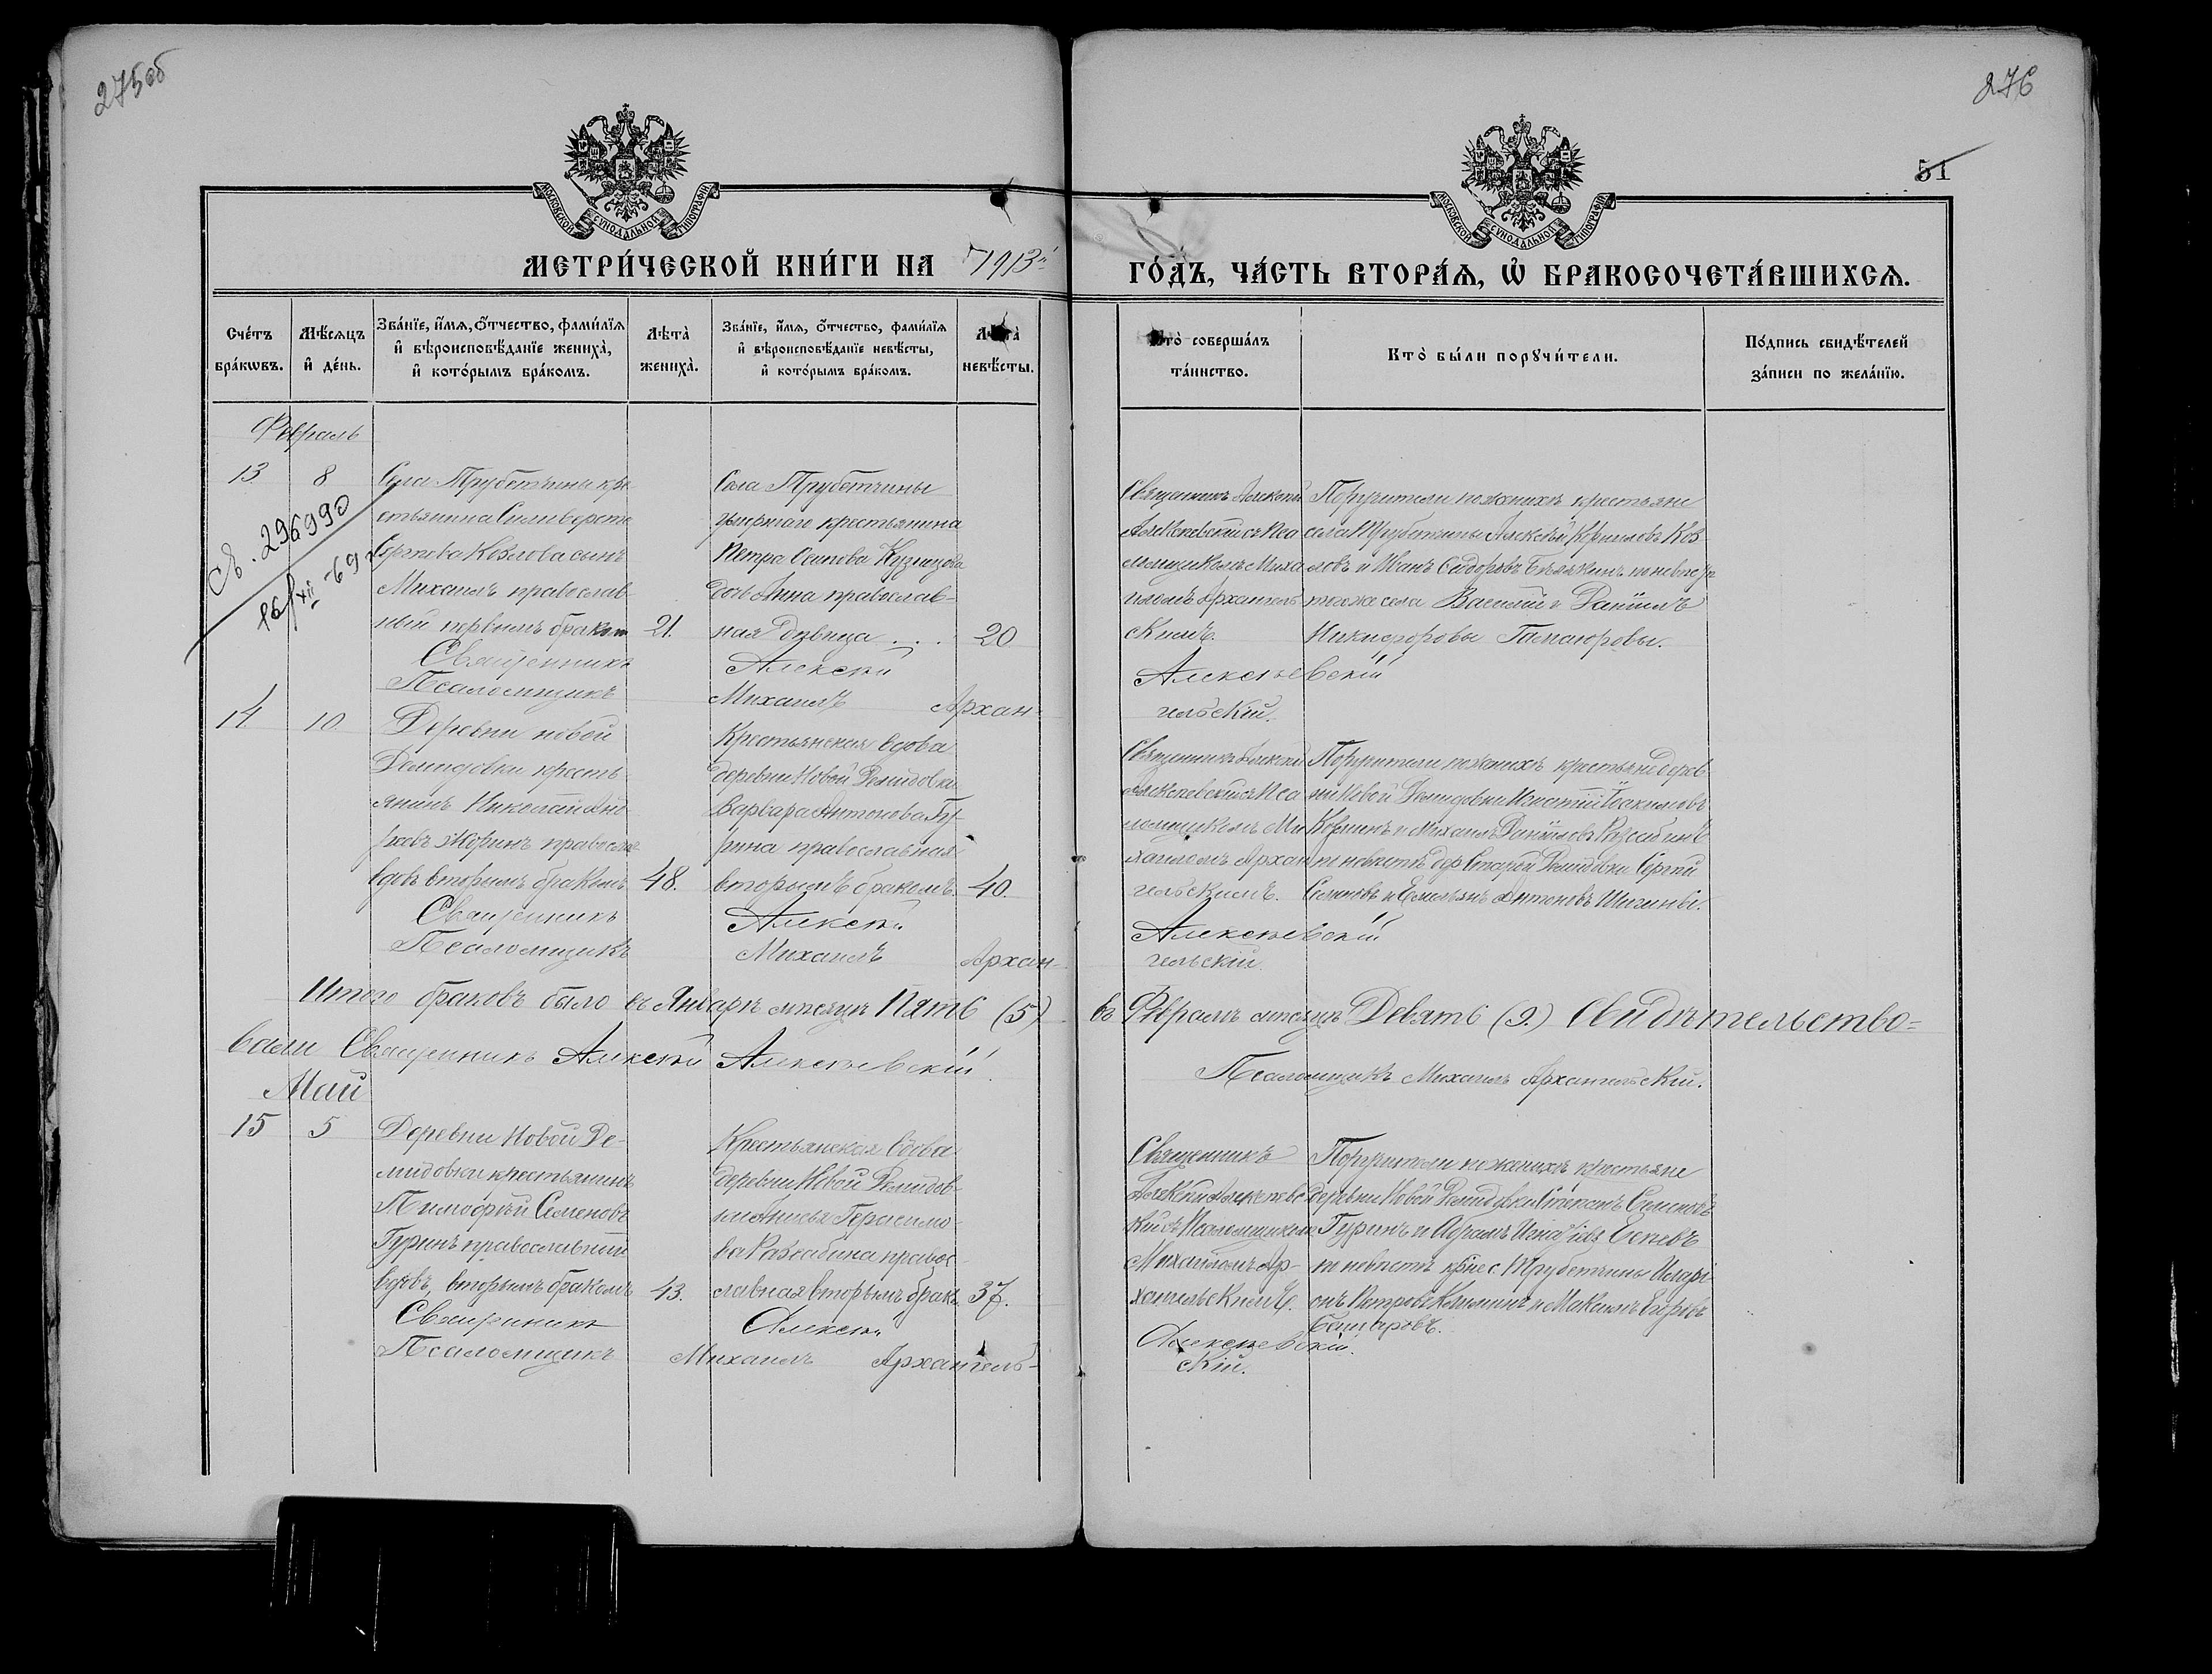 275об
276
51
МОСКОВСКОЙ СѴНОДАЛЬНОЙ ТИПОГРАФІИ
МОСКОВСКОЙ СѴНОДАЛЬНОЙ ТИПОГРАФІИ
МЕТРИ́ЧЕСКОЙ КНИ́ГИ НА 1913й
ГО́ДЪ, ЧА́СТЬ ВТОРА́Ѧ, Ѡ҆ БРАКОСОЧЕТА́ВШИХСѦ.
Сче́тъ бра́кѡвъ.
Мѣ́сѧцъ и҆ де́нь.
Зва́нїе, и҆́мѧ, ѻ҆́тчество, фами́лїѧ
и҆ вѣроисповѣ́данїе жениха̀,
и҆ кото́рымъ бра́комъ.
Лѣта̀ жениха̀.
Зва́нїе, и҆́мѧ, ѻ҆́тчество, фами́лїѧ
и҆ вѣроисповѣ́данїе невѣ́сты,
и҆ кото́рымъ бра́комъ.
Лѣта̀ невѣ́сты.
Кто̀ соверша́лъ
та́инство.
Кто̀ бы́ли порꙋчи́тели.
По́дпись свидѣ́телей
за́писи по жела́нїю.
Февраль
13
8
Села Трубетчины кре
стьянина Сильверста
Сергѣева Козлова сынъ
Михаилъ православ-
ный первымъ бракомъ
21.
Села Трубетчины
умершаго крестьянина
Петра Осипова Кузнецова
дочь Анна православ-
ная девица . . .
20
Священникъ Алексѣй
Алексѣевскій съ Пса
ломщикомъ Миха
иломъ Архангель
скимъ.
Поручители по женихѣ крестьяне
села Трубетчины Алексѣй Корниловъ Коз
ловъ и Иванъ Сидоровъ по невѣстѣ
тогоже села Василій и Даніилъ
Никифоровы
св. 296990
16/XII-69
Священникъ Алексѣй Алексѣевскій
Псаломщикъ Михаилъ Архан-гельскій.
14
10
Деревни новой
Демидовки кресть
янинъ Николай Анд
православ
вдовъ вторымъ бракомъ
48.
Крестьянская вдова
деревни Новой Демидовки
Варвара Антонова Гу-
рина православная
вторымъ бракомъ.
40.
Священникъ Алексѣй
Алексѣевскій съ Пса
ломщикомъ Ми
хаиломъ Архан
гельскимъ.
Поручители по женихѣ крестьяне дерев
ни Новой Демидовки
и Михаилъ Даніиловъ
по невѣстѣ дер. Старой Демидовки Сергѣй
Семеновъ и Емельянъ Антоновъ Шигины.
Священникъ Алексѣй Алексѣевскій
Псаломщикъ Михаилъ Архан-гельскій
Итого браковъ было въ Январѣ мѣсяцѣ Пять (5) въ Февралѣ мѣсяцѣ Девять (9.) Свидѣтельство=
вали Священникъ Алексѣй Алексѣевскій
Псаломщикъ Михаилъ Архангельскій.
Май
15
5
Деревни Новой Де-
мидовки крестьянинъ
Тимофѣй Семеновъ
Гуринъ православный
вдовъ, вторымъ бракомъ
43.
Крестьянская вдова
деревни Новой Демидов-
ки Анисья Герасимо-
ва правос-
лавная вторымъ бракъ
37.
Священникъ
Алексѣй Алексѣевс
кій съ Псаломщикомъ
Михаиломъ Ар-
хангельскимъ.
Поручители по женихѣ крестьяне
деревни Новой Демидовки Степанъ Семеновъ
Гуринъ и Абрамъ
по невѣстѣ кр-не с. Трубетчины Иларі-
онъ Петровъ и Максимъ Егоровъ
Священникъ Алексѣй Алексѣевскій.
Псаломщикъ Михаилъ Архангель-скій.